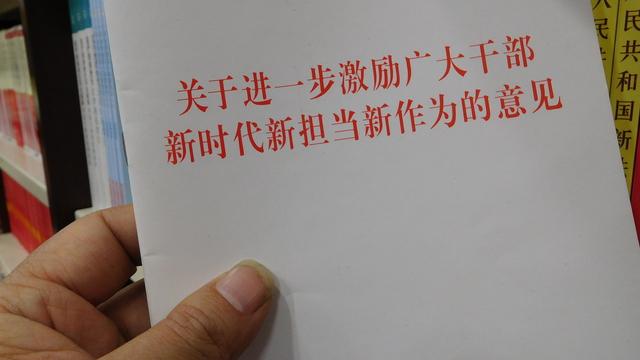 关于进一步激励广大干部
新时代新担当新作为的意见
民共和国新
人民